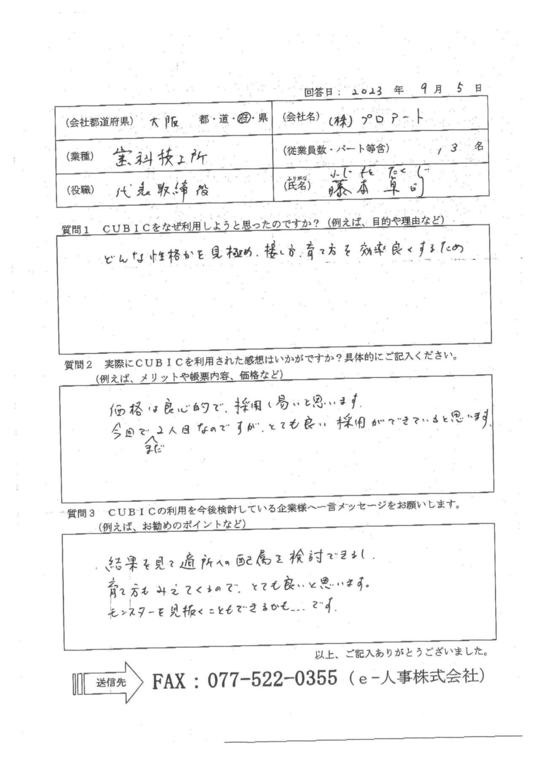 回答日： 2023 年 9 月 5 日
（会社都道府県） 大阪 都・道・府・県 （会社名） (株)プロアート
（業種） 歯科技工所 （従業員数・パート等含） 13 名
（役職） 代表取締役 （氏名） 藤本 卓司
ふりがな ふじもと たくじ
質問１ ＣＵＢＩＣをなぜ利用しようと思ったのですか？（例えば、目的や理由など）
どんな性格かを見極め、接し方、育て方を効率良くするため
質問２ 実際にＣＵＢＩＣを利用された感想はいかがですか？具体的にご記入ください。
（例えば、メリットや帳票内容、価格など）
価格は良心的で、採用し易いと思います。
今回でまだ2人目なのですが、とても良い採用ができていると思います。
質問３ ＣＵＢＩＣの利用を今後検討している企業様へ一言メッセージをお願いします。
（例えば、お勧めのポイントなど）
結果を見て適所への配属を検討できるし、
育て方もみえてくるので、とても良いと思います。
モンスターを見抜くこともできるかも……です。
以上、ご記入ありがとうございました。
送信先 FAX：077-522-0355（ｅ−人事株式会社）